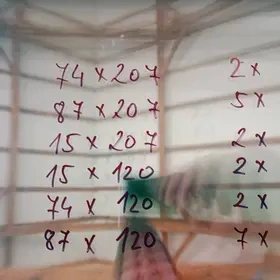 74 x 207 2 x
87 x 207 5 x
15 x 207 2 x
15 x 120 2 x
74 x 120 2 x
87 x 120 7 x